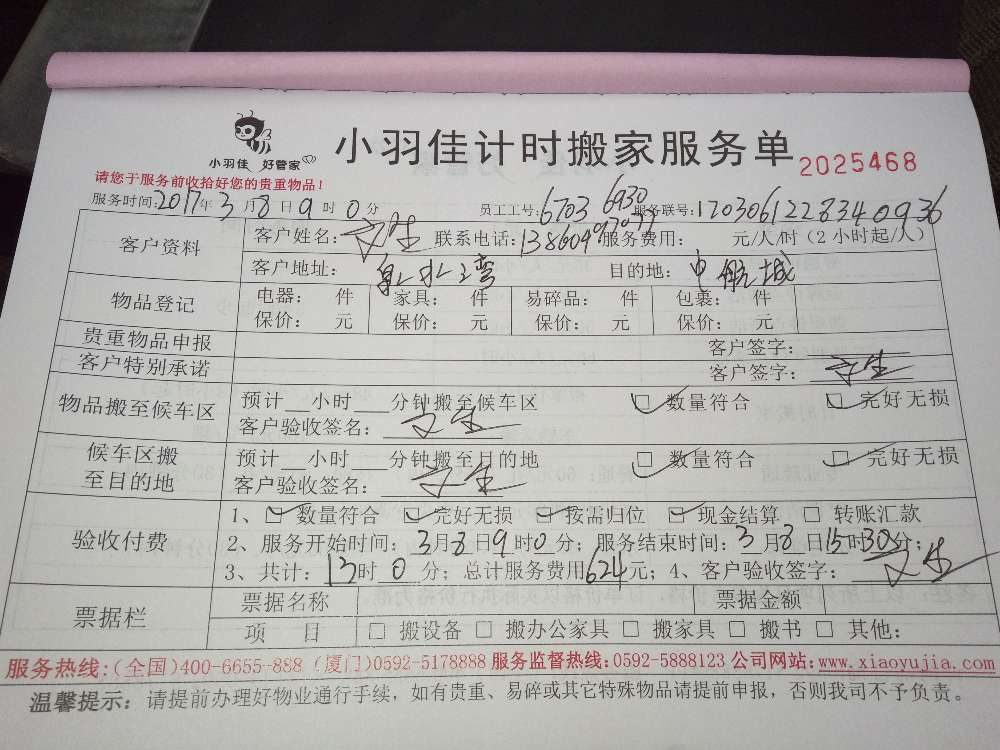 小羽佳 好管家
小羽佳计时搬家服务单 2025468
请您于服务前收拾好您的贵重物品！
服务时间：2017年3月8日9时0分 员工工号：6703 6930 服务联号：1703061228340936
客户资料 客户姓名： 联系电话： 服务费用： 元/人/时（2小时起/人）
客户地址： 水 湾 目的地：中航城
物品登记 电器： 件 家具： 件 易碎品： 件 包裹： 件
保价： 元 保价： 元 保价： 元 保价： 元
贵重物品申报 客户签字：
客户特别承诺 客户签字：
物品搬至候车区 预计__小时___分钟搬至候车区 ☑ 数量符合 ☑ 完好无损
客户验收签名：
候车区搬至目的地 预计__小时___分钟搬至目的地 ☑ 数量符合 ☑ 完好无损
客户验收签名：
验收付费 1、☑ 数量符合 ☑ 完好无损 ☑ 按需归位 ☑ 现金结算 □ 转账汇款
2、服务开始时间：3月8日9时0分；服务结束时间：3月8日15时30分；
3、共计：13时0分；总计服务费用624元；4、客户验收签字：
票据栏 票据名称 票据金额
项 目 □ 搬设备 □ 搬办公家具 □ 搬家具 □ 搬书 □ 其他：
服务热线：(全国)400-6655-888 (厦门)0592-5178888 服务监督热线：0592-5888123 公司网站：www.xiaoyujia.com
温馨提示：请提前办理好物业通行手续，如有贵重、易碎或其它特殊物品请提前申报，否则我司不予负责。